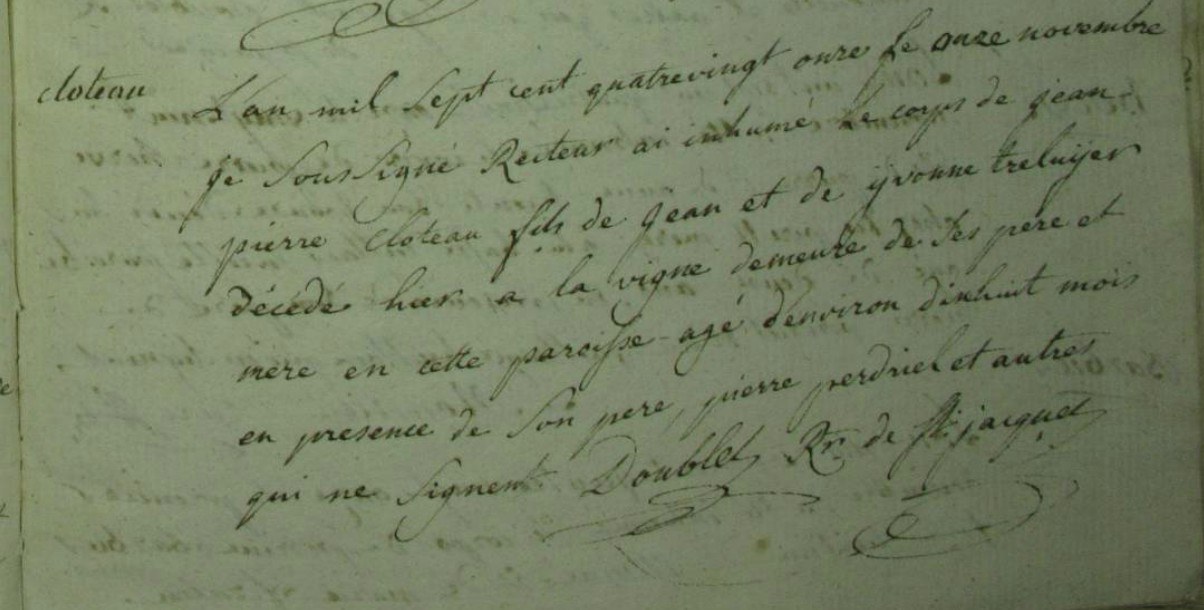 cloteau
L'an mil sept cent quatrevingt onze le onze novembre
je soussigné Recteur ai inhumé le corps de jean
pierre cloteau fils de jean et de yvonne treluyer
décédé hier a la vigne demeure de ses pere et
mere en cette paroisse agé d'environ dixhuit mois
en presence de son pere, pierre perdriel et autres
qui ne signent Doublet Rr. de St jacques